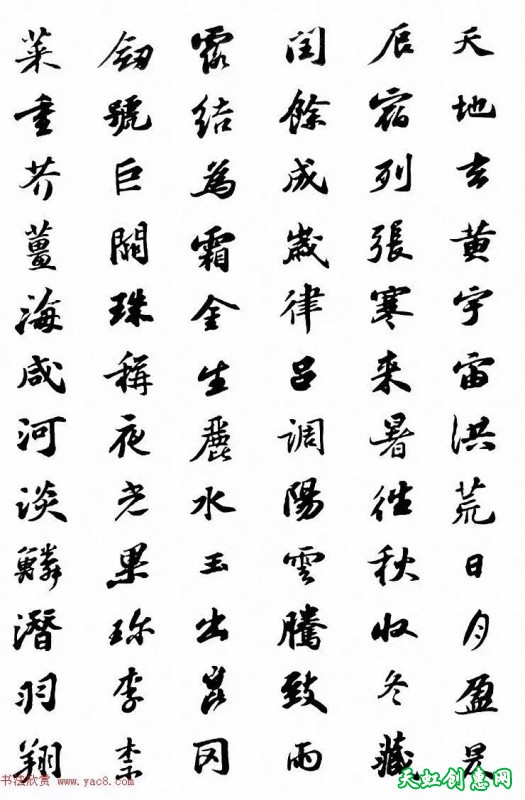 天地玄黄宇宙洪荒日月盈昃
辰宿列張寒来暑往秋收冬藏
閏餘成歲律吕調陽雲騰致雨
露結為霜金生麗水玉出崑冈
劒號巨闕珠稱夜光果珎李柰
菜重芥薑海咸河淡鱗潛羽翔
书法欣赏 www.yac8.com
天虹创意网